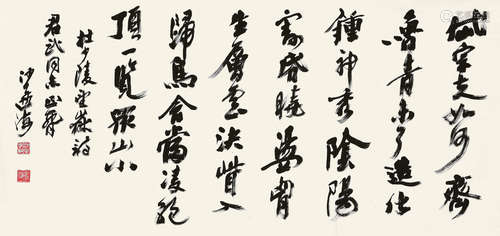 岱宗夫如何齊
魯青未了造化
鍾神秀陰陽
割昏曉盪胸
生層雲決眥入
歸鳥會當凌絕
頂一覽眾山小
杜少陵望嶽詩
君武同志正
沙孟海